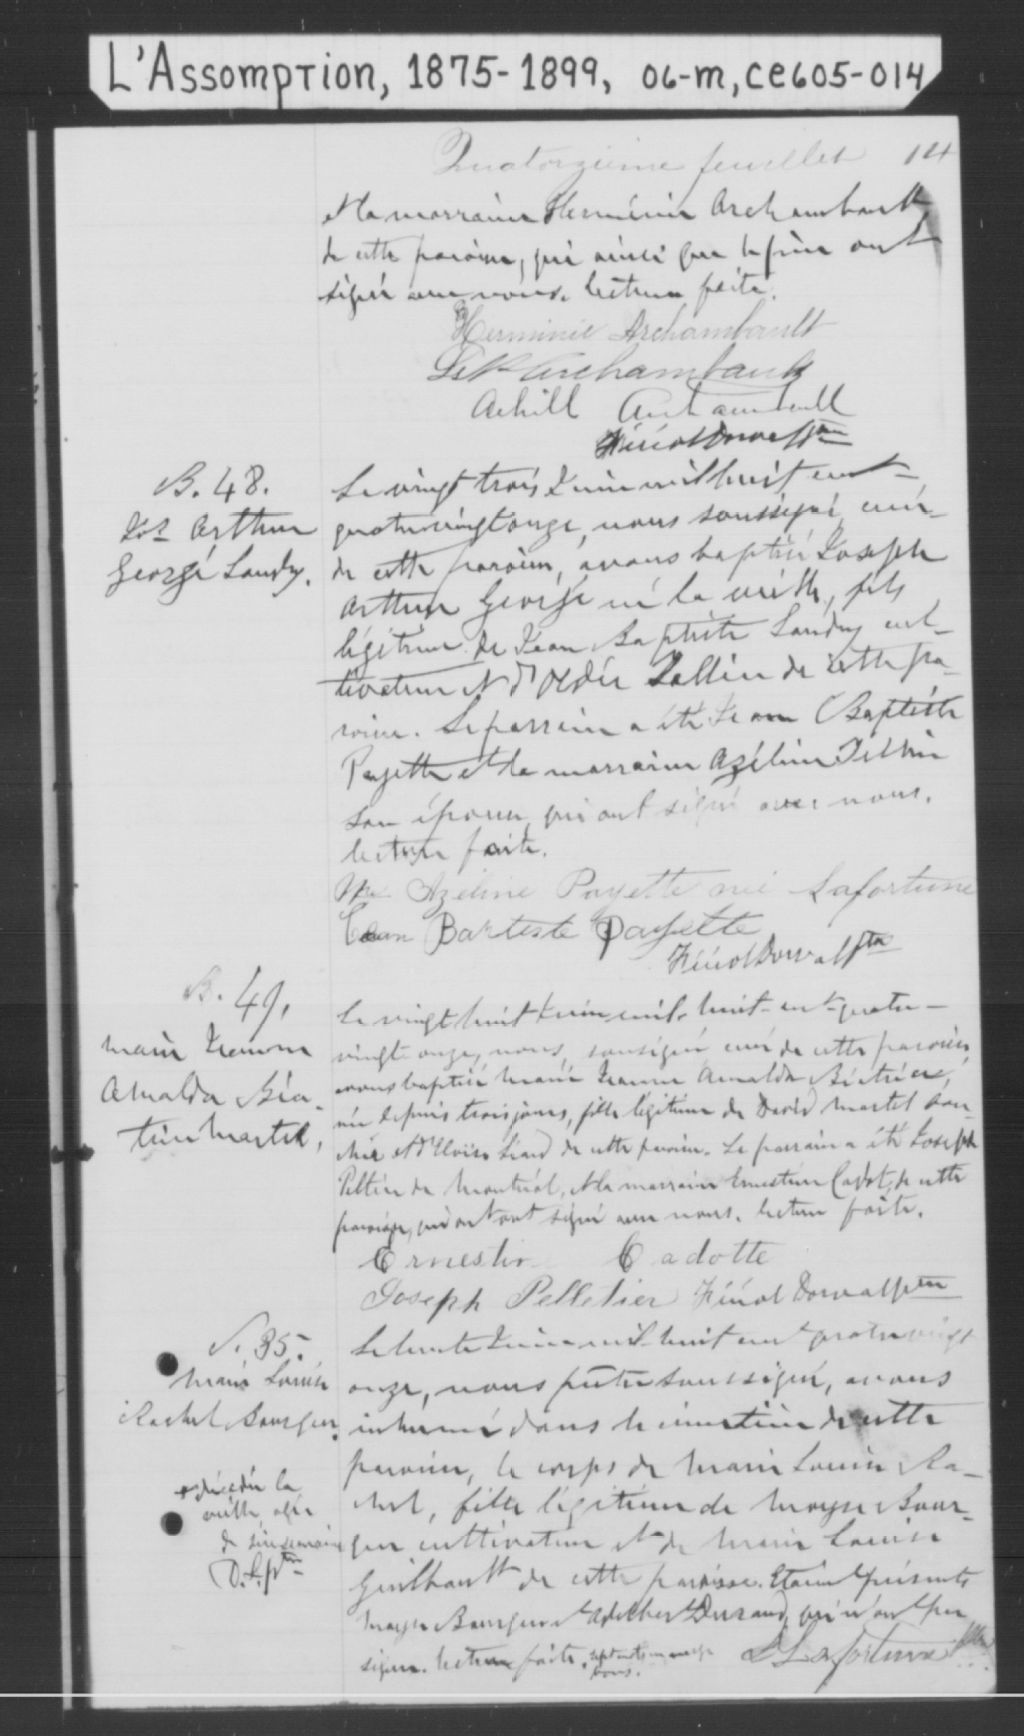 L'Assomption, 1875-1899, 06-m, ce605-014
Quatorzième feuillet 14
et la marraine Herménie Archambault
de cette paroisse, qui ainsi que le père ont
signé avec nous. lecture faite.
Herminie Archambault
Archambault
Achill Archambault
Dorval ptre
B. 48.
Jos Arthur
George Landry.
Le vingt trois Juin mil huit cent
quatrevingt onze, nous soussigné, curé
de cette paroisse, avons baptisé Joseph
Arthur George né la veille, fils
légitime de Jean Baptiste Landry cul-
tivateur et d' Peltier de cette pa-
roisse. Le parrain a été Jean Baptiste
Payette et la marraine Azéline
son épouse, qui ont signé avec nous.
lecture faite.
Azéline Payette née Lafortune
Jean Bartiste Payette
Dorval ptre
B. 49.
Marie Jeanne
Amalda Béa-
trice Martel.
Le vingt huit Juin mil huit-cent-quatre-
vingt onze, nous, soussigné curé de cette paroisse
avons baptisé Marie Jeanne Amalda Béatrice,
née depuis trois jours, fille légitime de David Martel bou-
cher et d' de cette paroisse. Le parrain a été Joseph
Peltier de Montréal, et la marraine Ernestine Cadot, de cette
paroisse, qui ont signé avec nous. lecture faite.
Ernestine Cadotte
Joseph Pelletier Dorval ptre
S. 35.
Marie Louise
Rachel Bourgeois.
Le trente Juin mil-huit cent quatre vingt
onze, nous prêtre soussigné, avons
inhumé dans le cimetière de cette
paroisse, le corps de Marie Louise Ra-
chel, fille légitime de Moyse Bour-
geois cultivateur et de Marie Louise
Guilbault de cette paroisse. Etaient présents
Moyse Bourgeois et Durand, qui n'ont pu
signer. lecture faite.
Lafortune ptre
+ décédée la
veille, agée
de semaines
ptre